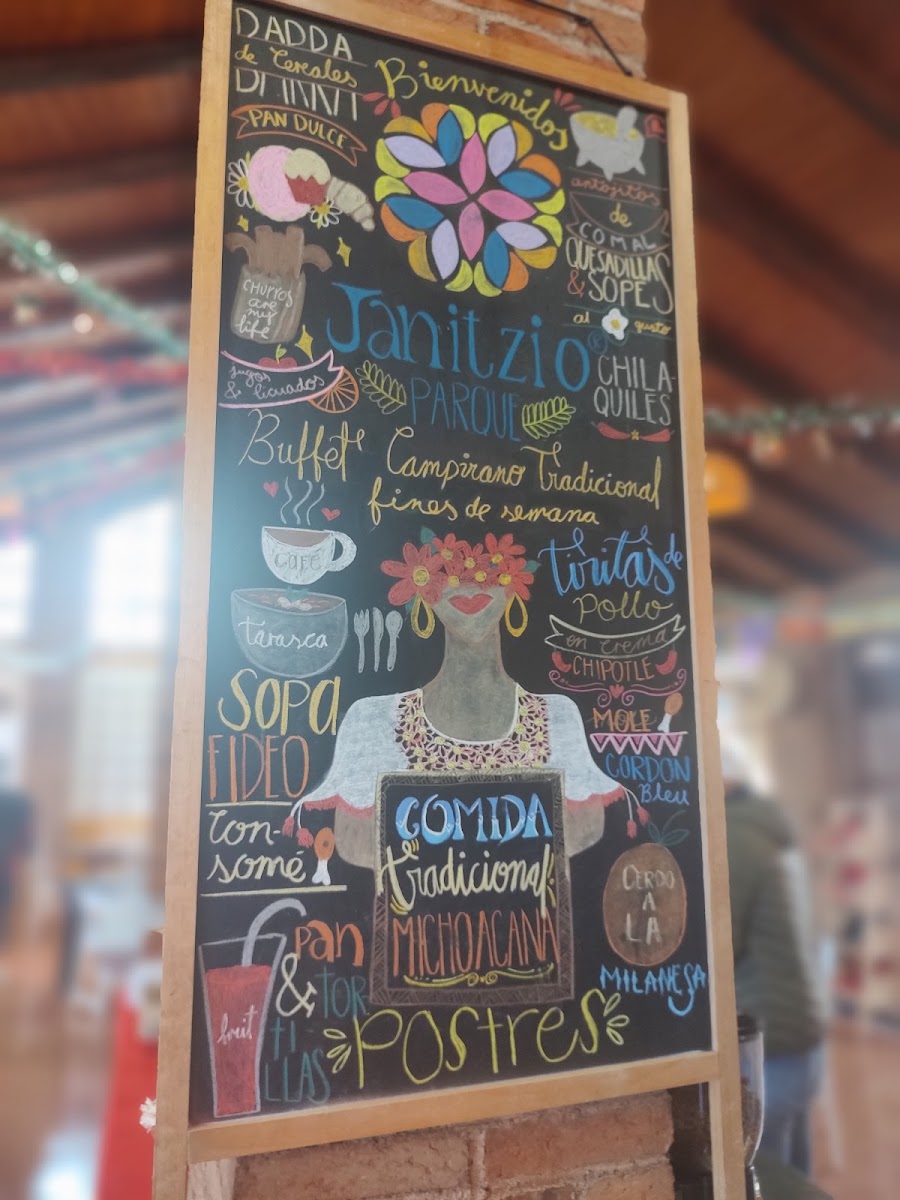 BARRA
de Cereales
BARRA
PAN DULCE
Bienvenidos
antojitos
de
COMAL
QUESADILLAS
& SOPES
al gusto
CHURROS
are
my
life
Janitzio®
PARQUE
CHILA
QUILES
jugos
& licuados
Buffet Campirano Tradicional
fines de semana
Café
Tarasca
Tiritas de
Pollo
en crema
CHIPOTLE
SOPA
FIDEO
Con-
somé
MOLE
CORDON
Bleu
COMIDA
tradicional
MICHOACANA
CERDO
A
LA
MILANESA
pan
& TOR
TI
LLAS
fruit
Postres